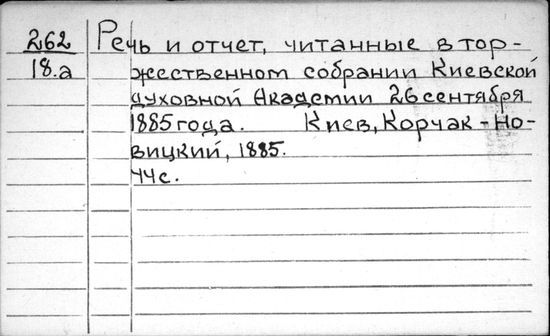 262
18.а
Речь и отчет, читанные в тор-
жественном собрании Киевской
духовной Академии 26 сентября
1885 года. Киев, Корчак-Но-
вицкий, 1885.
44 с.